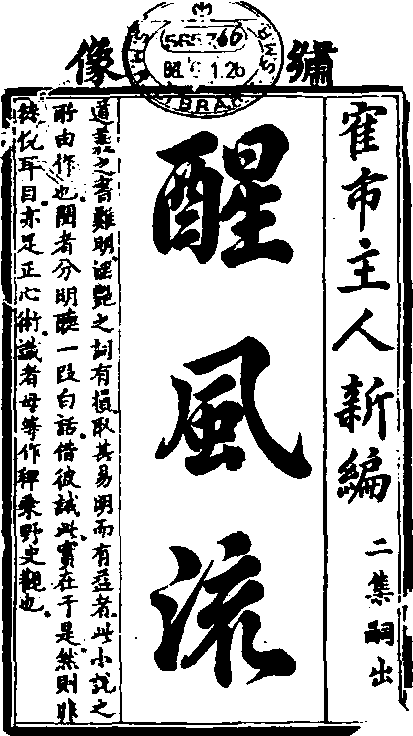 繡像
寉市主人新編
二集嗣出
醒風流
道義之書難明淫艷之詞有損取其易明而有益者此小說之
所由作也閱者分明聽一段白話借彼誡此實在于是然則非
徒悅耳目亦足正心術識者毋等作稗乘野史觀也
565766
LIBRAR